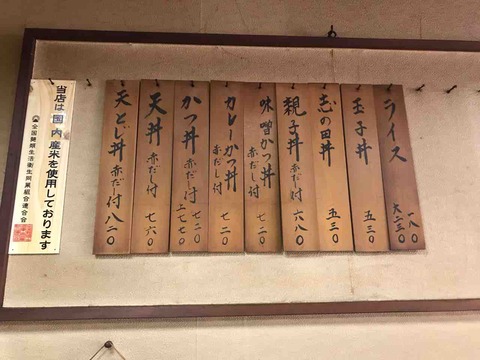 ライス 一八〇
大二三〇
玉子丼 五三〇
志の田丼 五三〇
親子丼 赤だし付 六八〇
味噌かつ丼 赤だし付 七二〇
カレーかつ丼 赤だし付 七二〇
かつ丼 赤だし付 七二〇
上七七〇
天丼 赤だし付 七六〇
天とじ丼 赤だし付 八二〇
当店は国内産米を使用しております
全国麺類生活衛生同業組合連合会